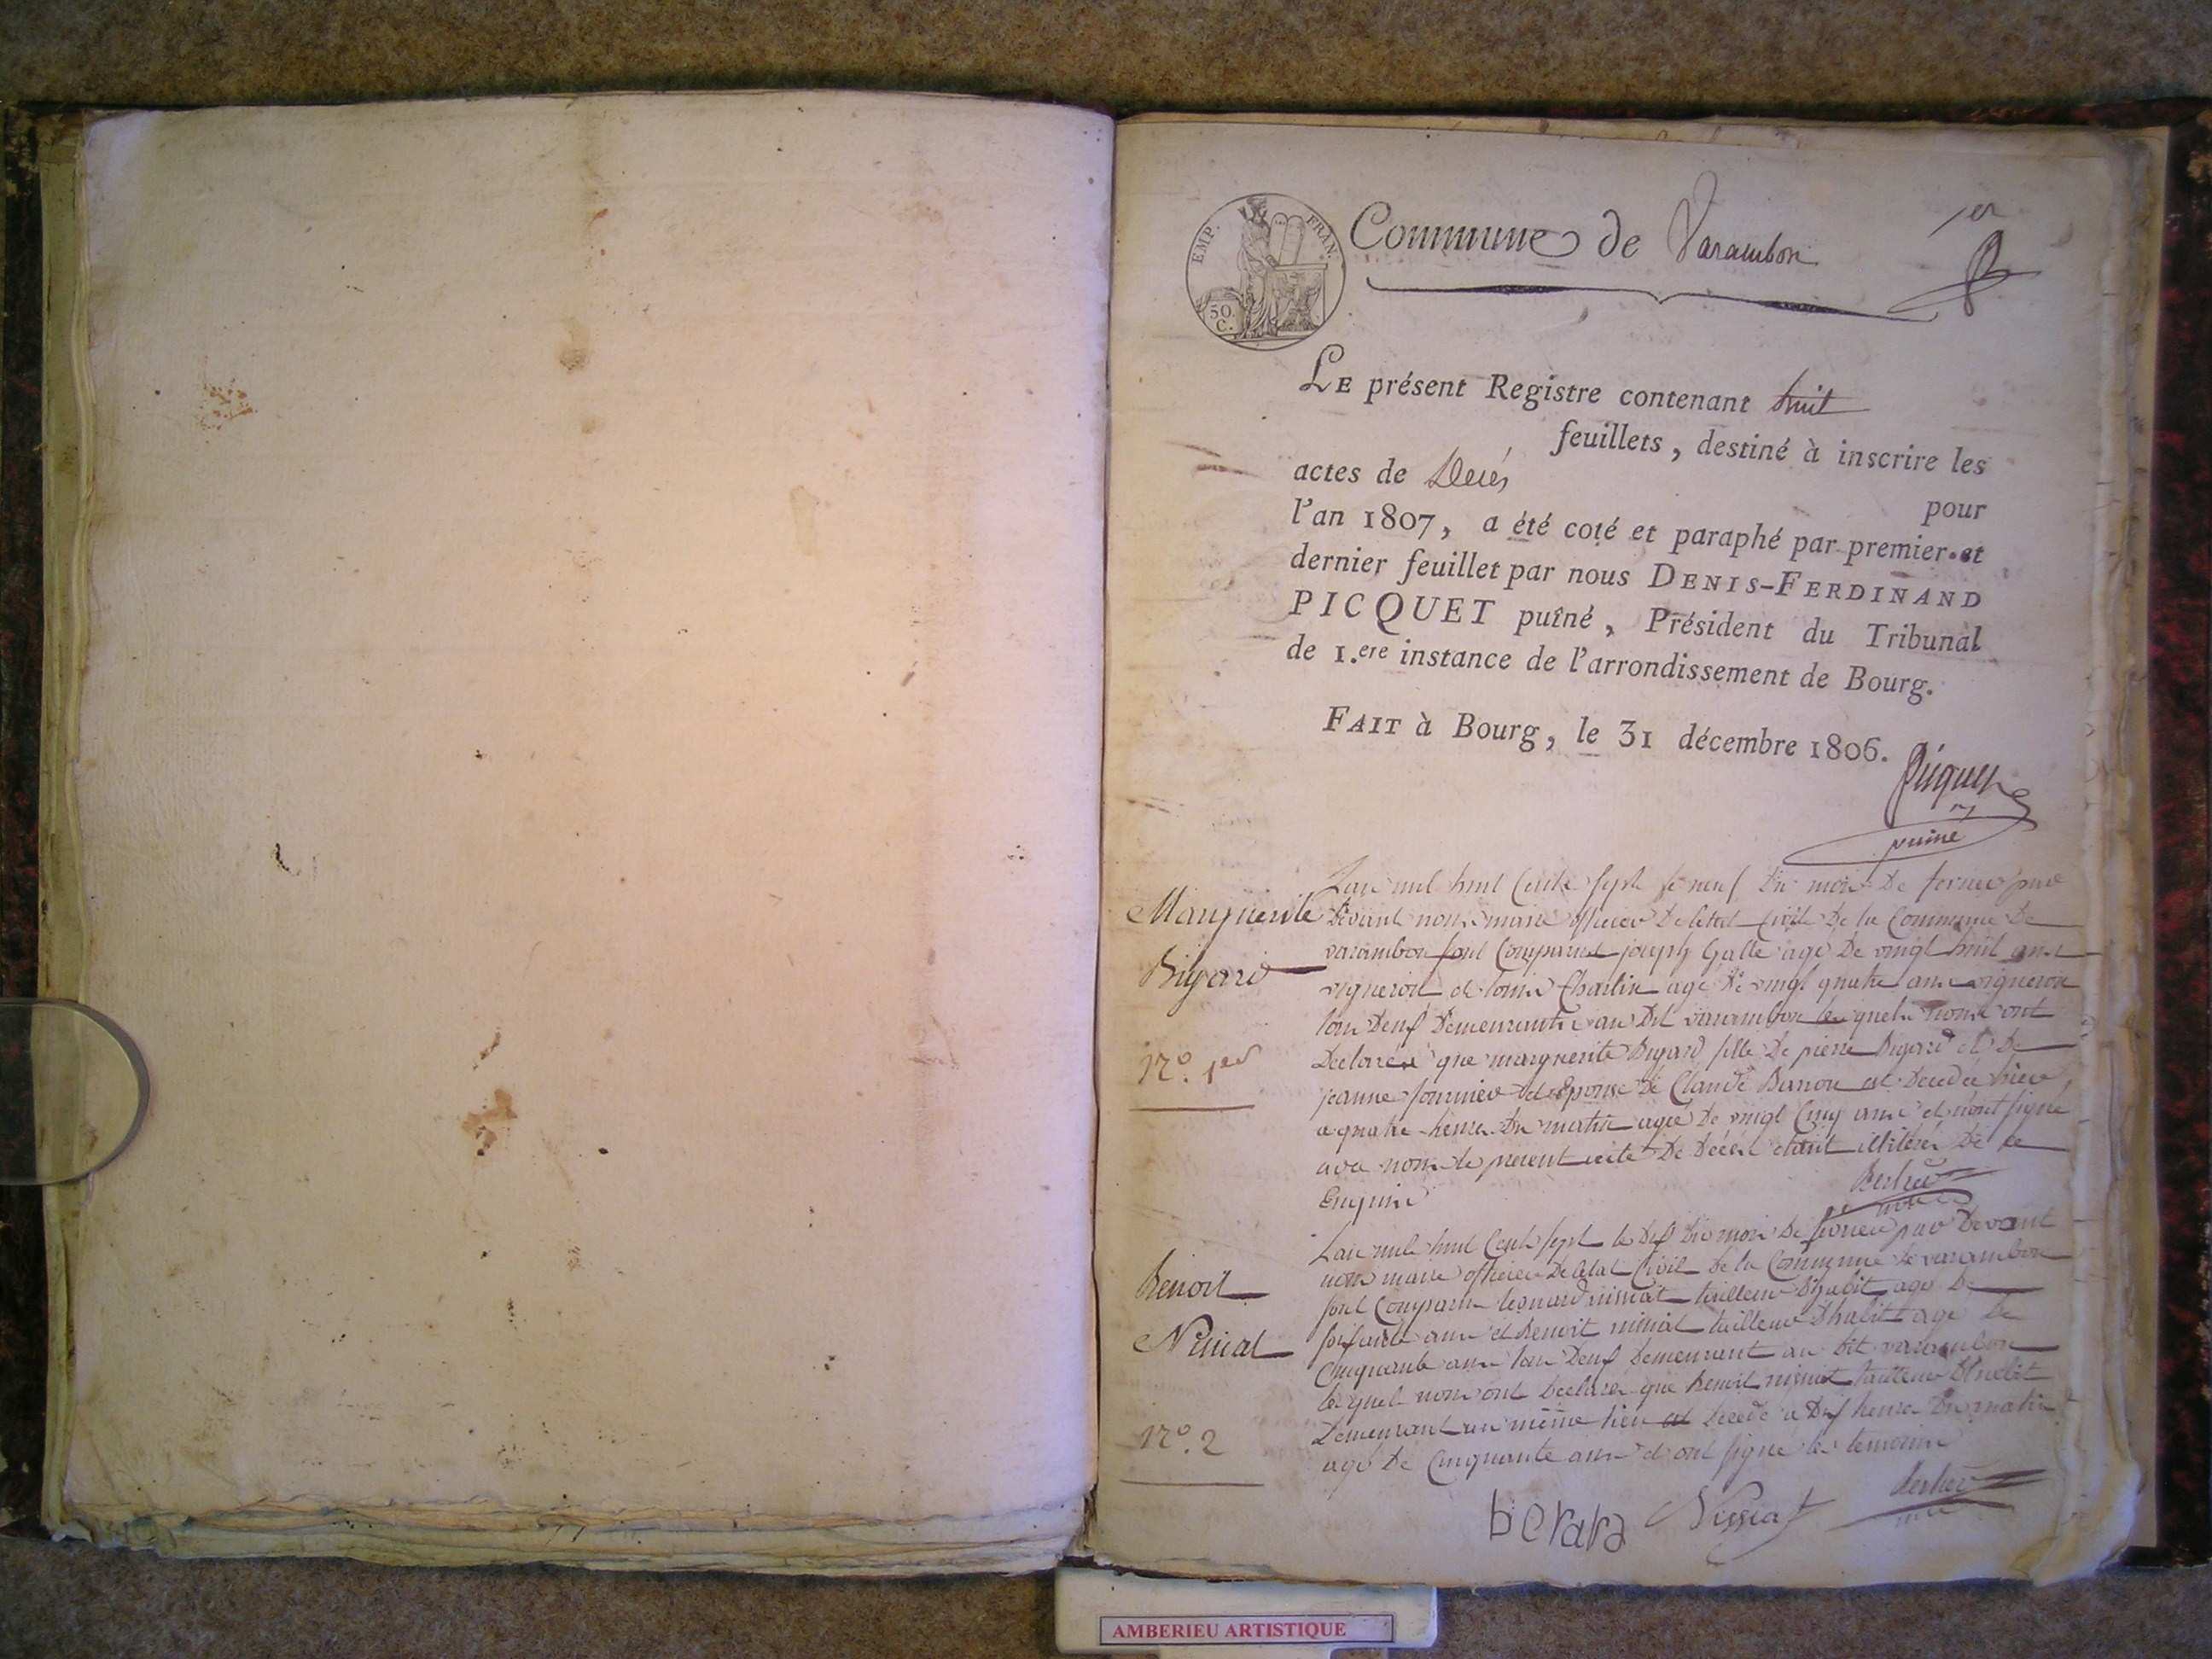 EMP. FRAN.
50.
C.
Commune de Varambon
1er
LE présent Registre contenant huit
feuillets, destiné à inscrire les
actes de Décés
pour
l'an 1807, a été coté et paraphé par premier et
dernier feuillet par nous DENIS-FERDINAND
PICQUET puîné, Président du Tribunal
de 1.ere instance de l'arrondissement de Bourg.
FAIT à Bourg, le 31 décembre 1806.
Picquet
puiné
Marguerite
Bigard
N.o 1er
Lan mil huit Cents sept le neuf du mois De fevrier par
Devant nous maire officier De letat Civil De la Commune De
varambon sont Comparus joseph Galle age De vingt huit ans
vigneron et louis Charlin age De vingt quatre ans vigneron
tous Deux Demeurants au Dit varambon lesquels nous ont
Declarés que marguerite Bigard fille De pierre Bigard et De
jeanne fournier et Epouse De Claude Banon est Decedee hier
a quatre heures Du matin agée De vingt Cinq ans et n'ont signé
avec nous le present acte De Décés etant illiterés De ce
Enquis
Benoit
Nissiat
N.o 2
Lan mil huit Cents sept le Dix Du mois De fevrier par Devant
nous maire officier De letat Civil De la Commune De varambon
sont Comparus leonard nissiat tailleur Dhabit age De
soixante ans et Benoit nissiat tailleur Dhabit age De
Cinquante ans tous Deux Demeurant au Dit varambon
lesquels nous ont Declarés que Benoit nissiat tailleur Dhabit
Demeurant au même lieu est Decedé a Dix heures Du matin
agé De Cinquante ans et ont signé les temoins
berard Nissiat
AMBERIEU ARTISTIQUE